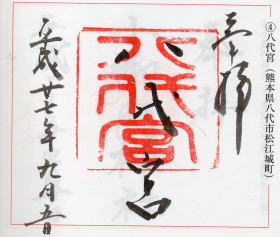 ④八代宮（熊本県八代市松江城町）
奉拝
八代宮
八代宮
平成廿七年九月